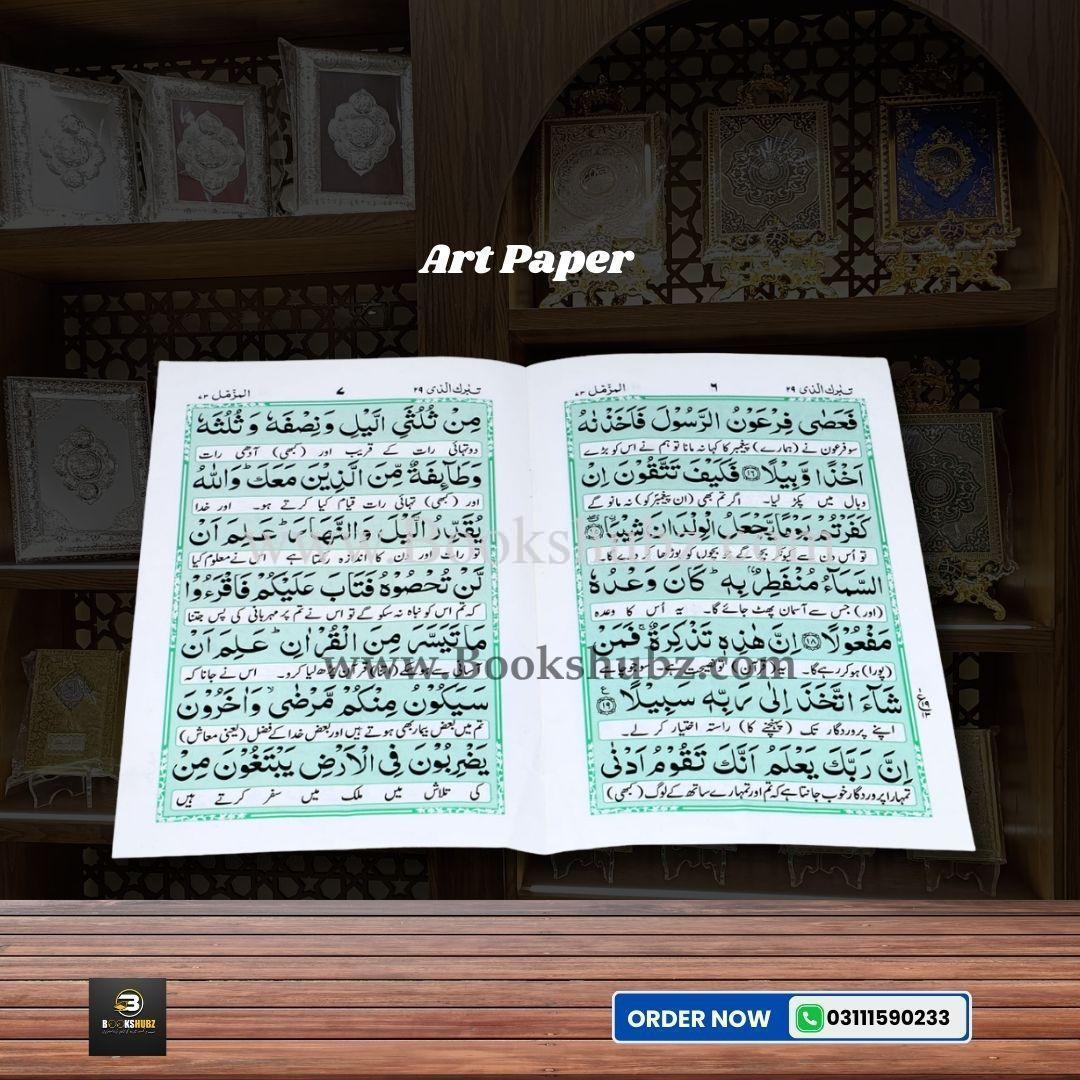 Art Paper
تبٰرك الذی ۲۹
۶
المزّمّل ۷۳
فَعَصٰی فِرْعَوْنُ الرَّسُوْلَ فَاَخَذْنٰهُ
سو فرعون نے (ہمارے) پیغمبر کا کہا نہ مانا تو ہم نے اس کو بڑے
اَخْذًا وَّبِیْلًا ۝۱۶ فَكَیْفَ تَتَّقُوْنَ اِنْ
وبال میں پکڑ لیا۔ اگر تم بھی (ان پیغمبر کو) نہ مانو گے
كَفَرْتُمْ یَوْمًا یَّجْعَلُ الْوِلْدَانَ شِیْبَا
تو اُس دن سے کیونکر بچو گے جو بچوں کو بوڑھا کر دے گا
السَّمَآءُ مُنْفَطِرٌۢ بِهٖ ؕ كَانَ وَعْدُهٗ
(اور) جس سے آسمان پھٹ جائے گا۔ یہ اُس کا وعدہ
مَفْعُوْلًا ۝۱۸ اِنَّ هٰذِهٖ تَذْكِرَةٌ ۚ فَمَنْ
(پورا) ہو کر رہے گا۔ یہ (قرآن)
شَآءَ اتَّخَذَ اِلٰی رَبِّهٖ سَبِیْلًا ۝۱۹
اپنے پروردگار تک (پہنچنے کا) راستہ اختیار کر لے۔
اِنَّ رَبَّكَ یَعْلَمُ اَنَّكَ تَقُوْمُ اَدْنٰی
تمہارا پروردگار خوب جانتا ہے کہ تم اور تمہارے ساتھ کے لوگ (کبھی)
تبٰرك الذی ۲۹
۷
المزّمّل ۷۳
مِنْ ثُلُثَیِ الَّیْلِ وَ نِصْفَهٗ وَ ثُلُثَهٗ
دو تہائی رات کے قریب اور (کبھی) آدھی رات
وَ طَآىِٕفَةٌ مِّنَ الَّذِیْنَ مَعَكَ ؕ وَ اللّٰهُ
اور (کبھی) تہائی رات قیام کیا کرتے ہو۔ اور خدا
یُقَدِّرُ الَّیْلَ وَ النَّهَارَ ؕ عَلِمَ اَنْ
تو رات اور دن کا اندازہ رکھتا ہے اس نے معلوم کیا
لَّنْ تُحْصُوْهُ فَتَابَ عَلَیْكُمْ فَاقْرَءُوْا
کہ تم اس کو نباہ نہ سکو گے تو اس نے تم پر مہربانی کی پس جتنا
مَا تَیَسَّرَ مِنَ الْقُرْاٰنِ ؕ عَلِمَ اَنْ
قرآن پڑھ لیا کرو۔ اس نے جانا کہ
سَیَكُوْنُ مِنْكُمْ مَّرْضٰی ۙ وَ اٰخَرُوْنَ
تم میں بعض بیمار بھی ہوتے ہیں اور بعض خدا کے فضل (یعنی معاش)
یَضْرِبُوْنَ فِی الْاَرْضِ یَبْتَغُوْنَ مِنْ
کی تلاش میں ملک میں سفر کرتے ہیں
www.Bookshubz.com
www.Bookshubz.com
BOOKSHUBZ
ORDER NOW 03111590233